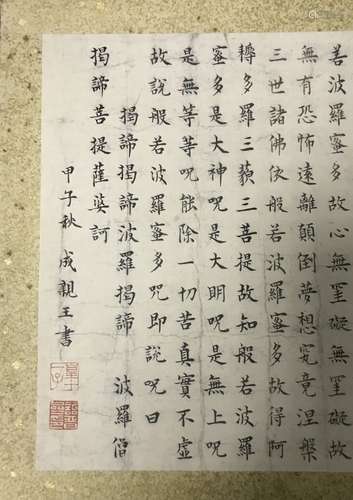 菩波羅蜜多故心無罣礙無罣礙故
無有恐怖遠離顛倒夢想究竟涅槃
三世諸佛依般若波羅蜜多故得阿
耨多羅三藐三菩提故知般若波羅
蜜多是大神咒是大明咒是無上咒
是無等等咒能除一切苦真實不虛
故說般若波羅蜜多咒即說咒曰
揭諦揭諦波羅揭諦 波羅僧
揭諦菩提薩婆訶
甲子秋 成親王書